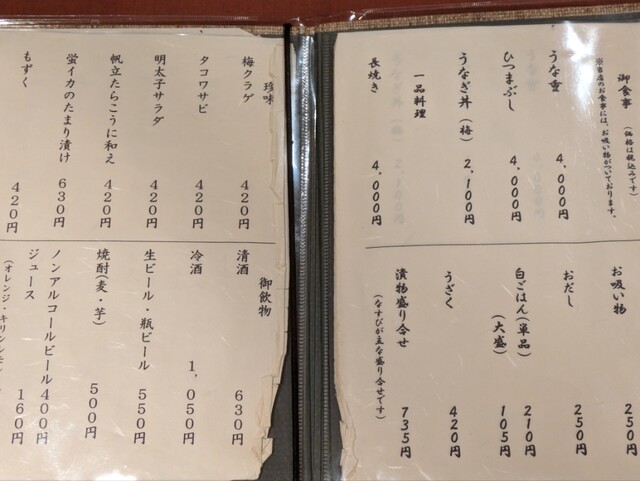 御食事 (価格は税込みです)
※当店のお食事には、お吸い物がついております。
うな重 4,000円
ひつまぶし 4,000円
うなぎ丼 (梅) 2,100円
一品料理
長焼き 4,000円
お吸い物 250円
おだし 250円
白ごはん(単品) 210円
(大盛) 105円
うざく 420円
漬物盛り合せ 735円
(なすびが主な盛り合せです)
珍味
梅クラゲ 420円
タコワサビ 420円
明太子サラダ 420円
帆立たらこうに和え 420円
蛍イカのたまり漬け 630円
もずく 420円
御飲物
清酒 630円
冷酒 1,050円
生ビール・瓶ビール 550円
焼酎(麦・芋) 500円
ノンアルコールビール 400円
ジュース 160円
(オレンジ・キリンレモン